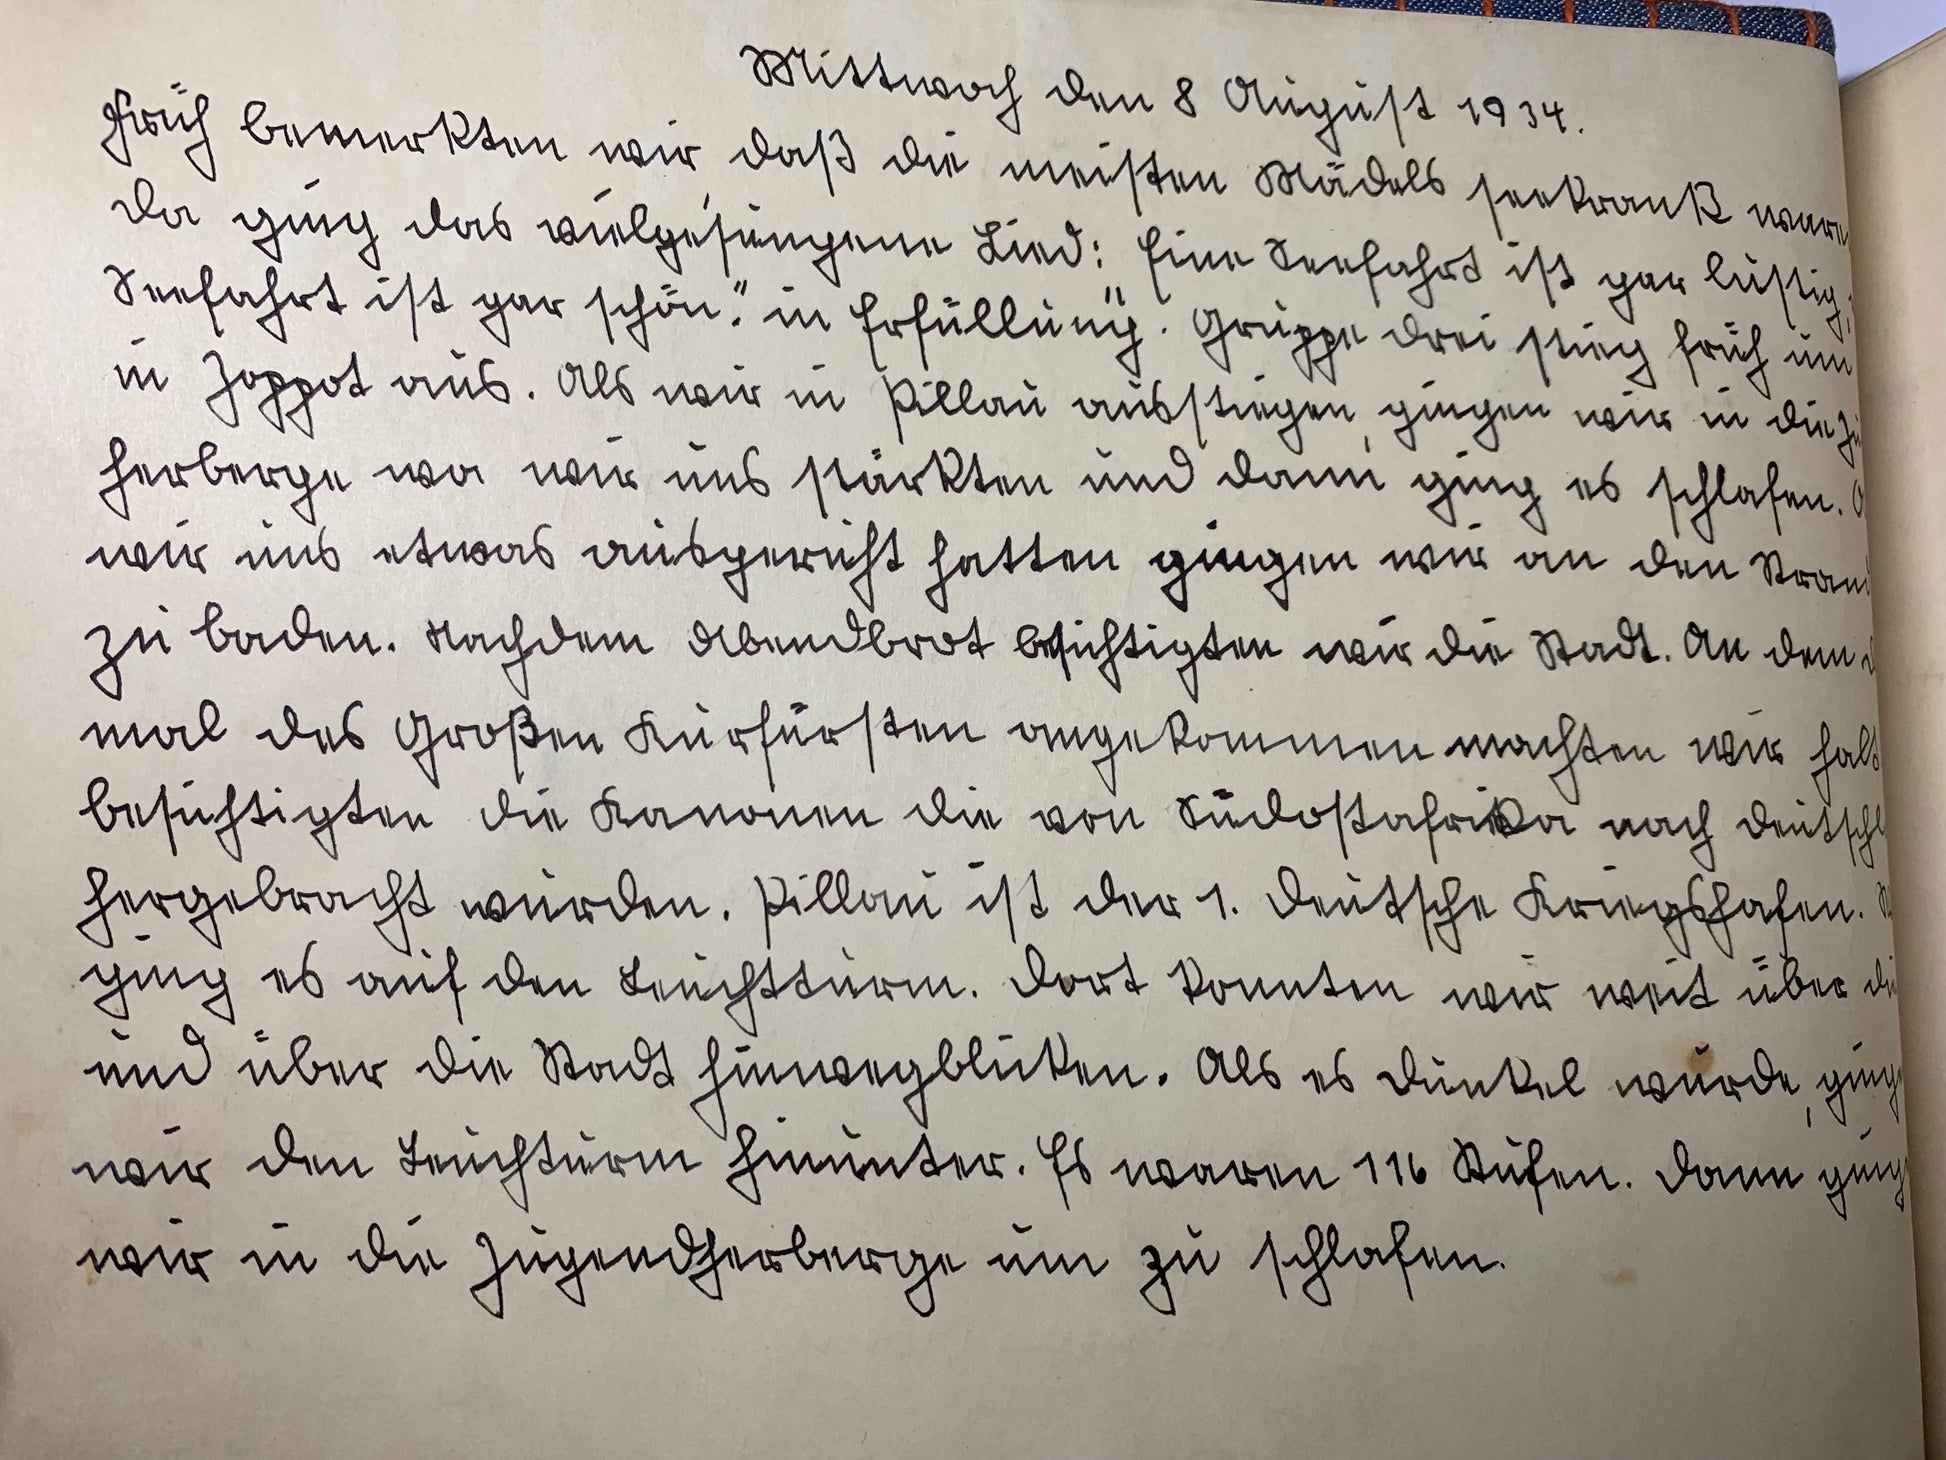 Mittwoch den 8 August 1934.
Früh bemerkten wir, daß die meisten Mädels seekrank waren
da ging das vielgesungene Lied: Eine Seefahrt ist gar lustig,
Seefahrt ist gar schön." in Erfüllung. Gruppe drei stieg früh um
in Zoppot aus. Als wir in Pillau ausstiegen, gingen wir in die Ju
herberge wo wir uns stärkten und dann ging es schlafen.
wir uns etwas ausgeruht hatten gingen wir an den Strand
zu baden. Nachdem Abendbrot besichtigten wir die Stadt. An dem
mal des Großen Kurfürsten angekommen machten wir halt
besichtigten die Kanonen die von Südostafrika nach Deutschl
hergebracht wurden. Pillau ist der 1. Deutsche Kriegshafen.
ging es auf den Leuchtturm. Dort konnten wir weit über di
und über die Stadt hinwegbliken. Als es dunkel wurde, ging
wir den Leuchturm hinunter. Es waren 116 Stufen. Dann ging
wir in die Jugendherberge um zu schlafen.